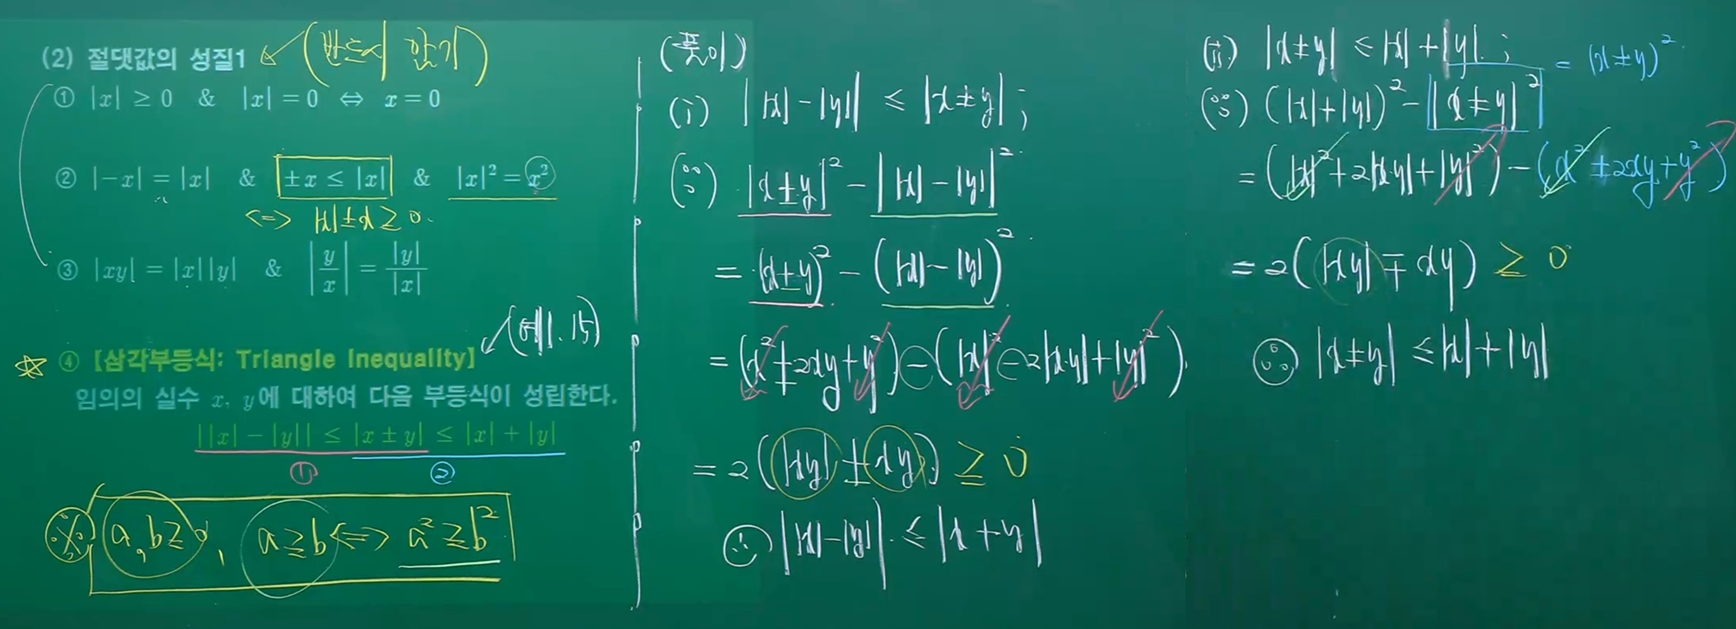 (2) 절댓값의 성질1 ↙ (반드시 암기)
① |x| ≥ 0 & |x| = 0 ⇔ x = 0
② |−x| = |x| & ±x ≤ |x| & |x|² = x²
⇔ |x| ± x ≥ 0.
③ |xy| = |x||y| & |y/x| = |y|/|x|
(예1.15)
☆ ④ [삼각부등식: Triangle Inequality]
임의의 실수 x, y에 대하여 다음 부등식이 성립한다.
||x| − |y|| ≤ |x ± y| ≤ |x| + |y|
① ②
※ a, b ≥ 0, a ≥ b ⇔ a² ≥ b²
(풀이)
(i) ||x| − |y|| ≤ |x ± y| ;
(∵) |x ± y|² − ||x| − |y||²
= (x ± y)² − (|x| − |y|)²
= (x² ± 2xy + y²) − (|x|² − 2|xy| + |y|²)
= 2(|xy| ± xy) ≥ 0
∴ ||x| − |y|| ≤ |x + y|
(ii) |x ± y| ≤ |x| + |y| ;
= (x ± y)²
(∵) (|x| + |y|)² − |x ± y|²
= (|x|² + 2|xy| + |y|²) − (x² ± 2xy + y²)
= 2(|xy| ∓ xy) ≥ 0
∴ |x ± y| ≤ |x| + |y|